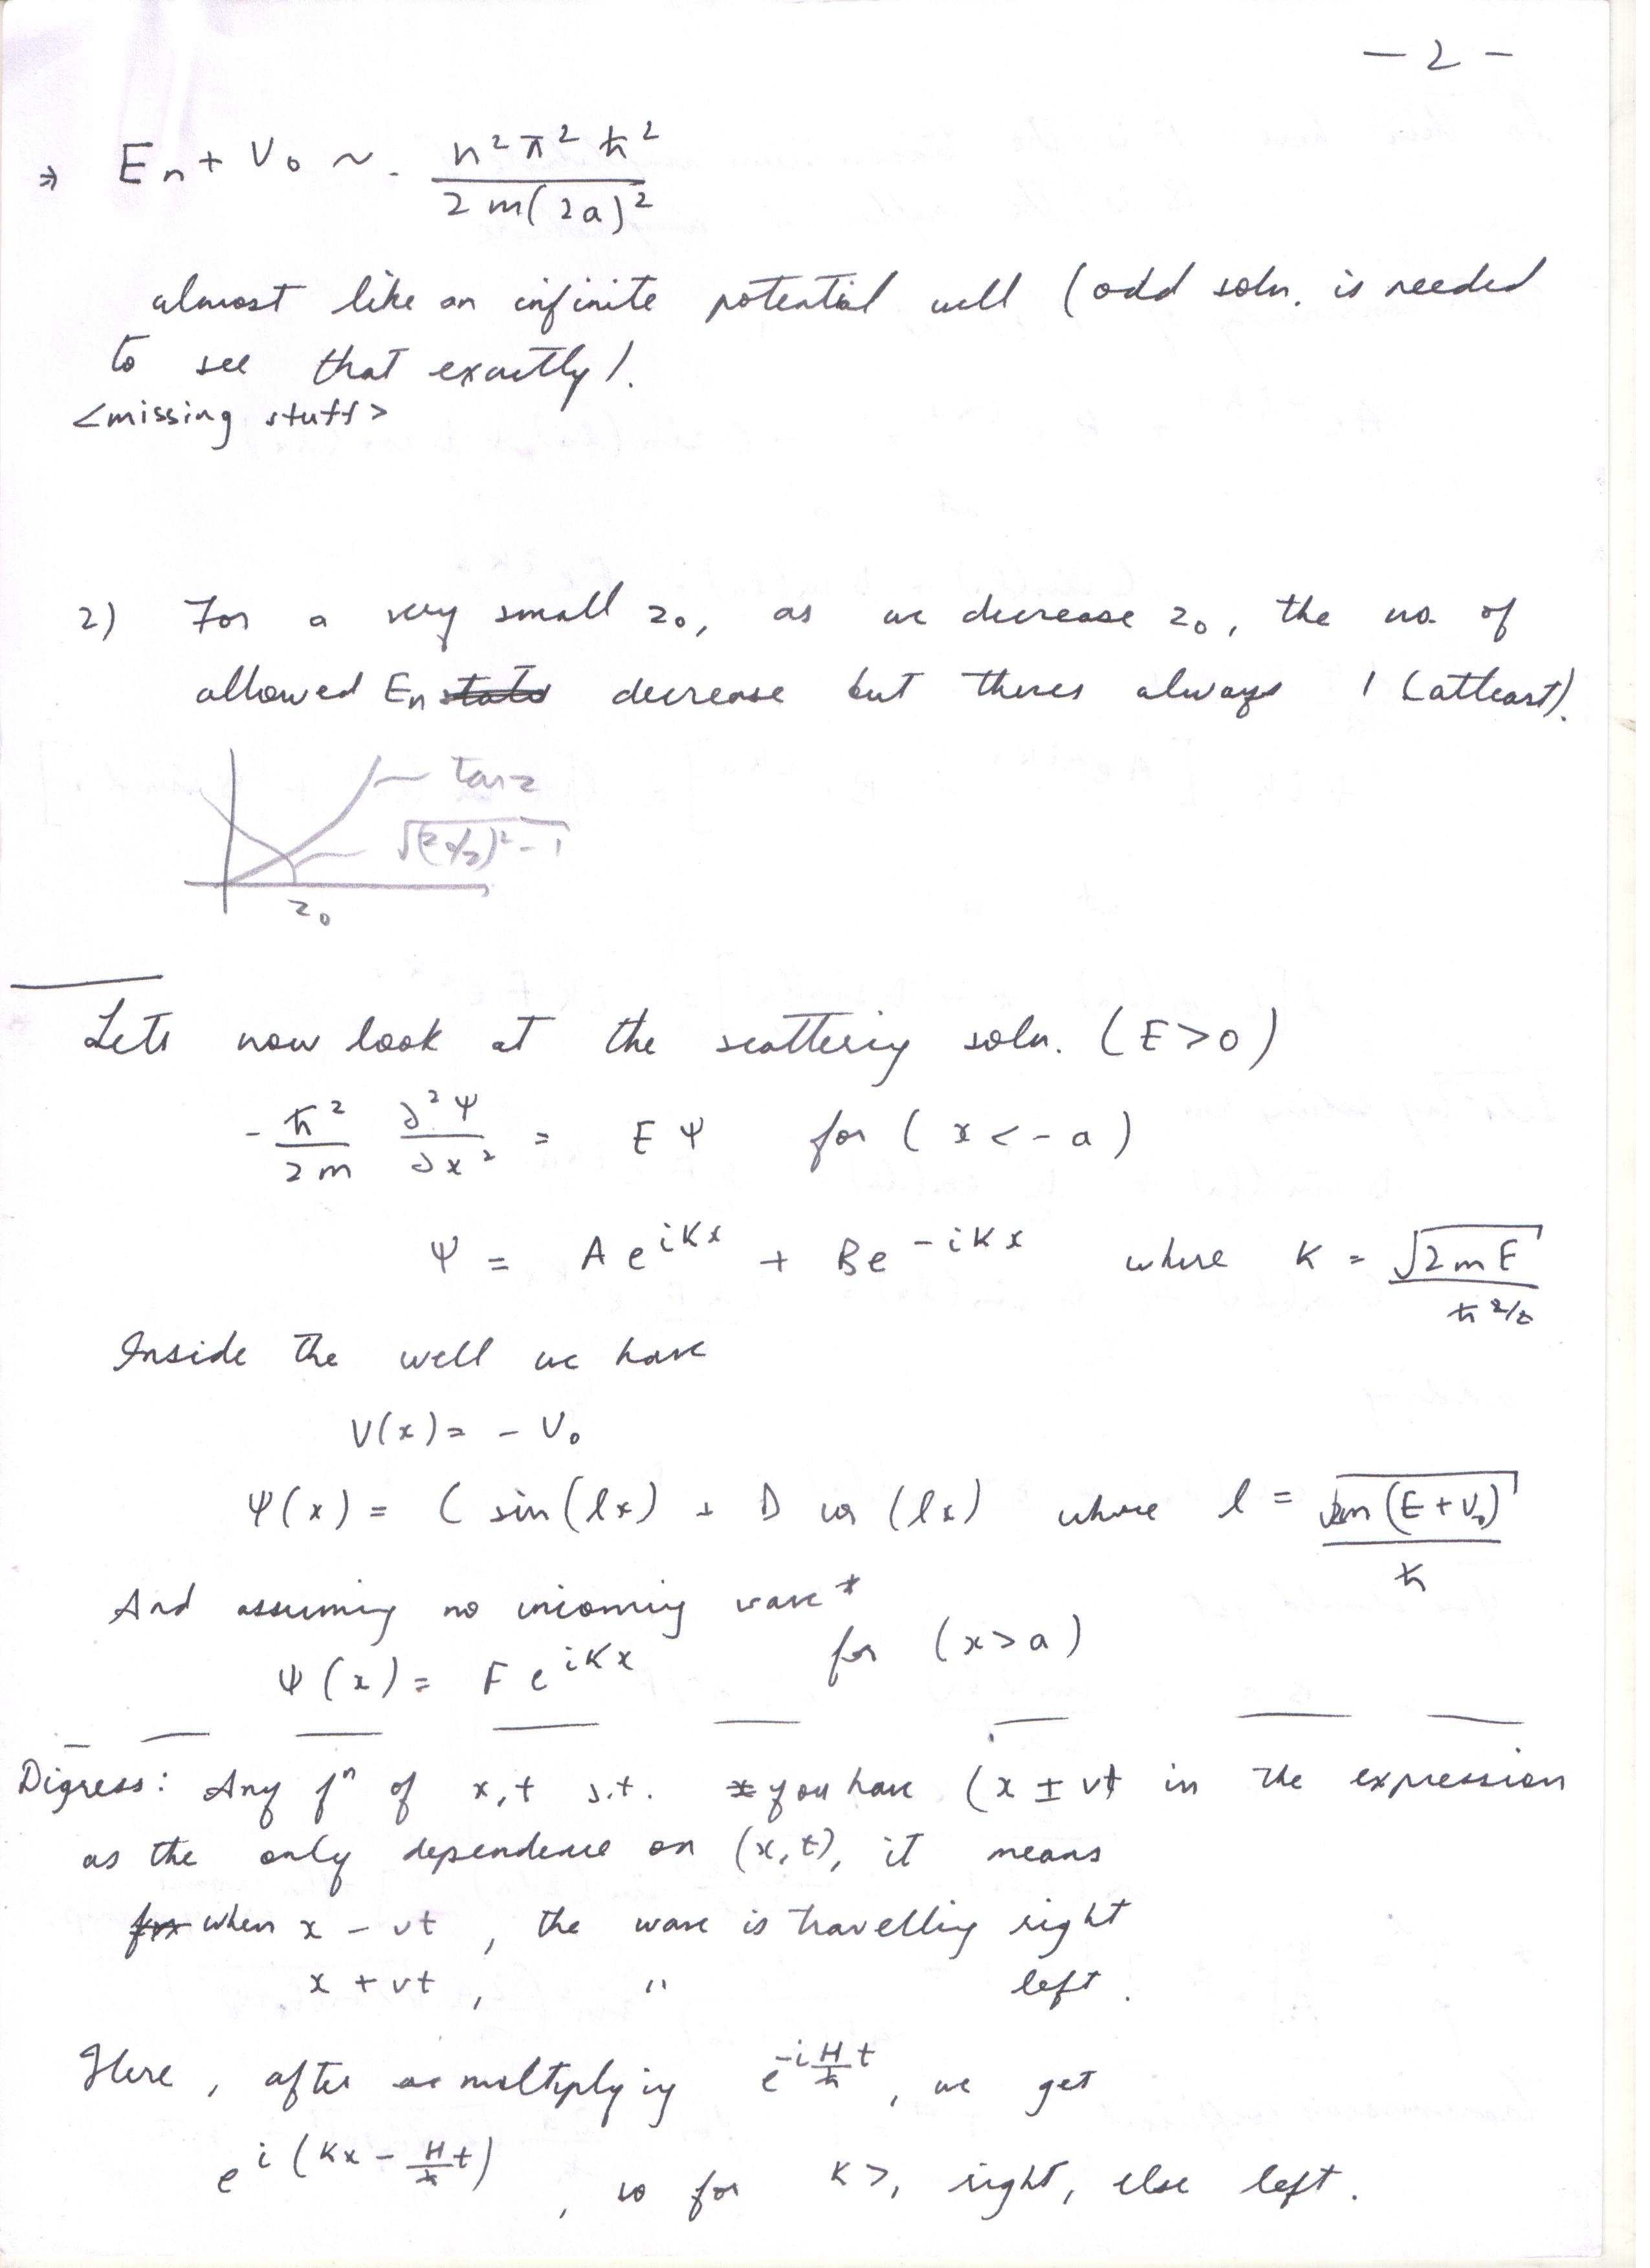 - 2 -
⇒ Eₙ + V₀ ~ n²π²ħ² / 2m(2a)²
almost like an infinite potential well (odd soln. is needed
to see that exactly).
<missing stuff>
2) For a very small z₀, as we decrease z₀, the no. of
allowed Eₙ decrease but theres always 1 (atleast).
tan z
√(z₀/z)² - 1
z₀
Lets now look at the scattering soln. (E>0)
- ħ²/2m ∂²ψ/∂x² = Eψ for (x < -a)
ψ = A e^{iKx} + B e^{-iKx} where K = √2mE / ħ^{2/2}
Inside the well we have
V(x) = - V₀
ψ(x) = C sin(lx) + D cos(lx) where l = √2m(E+V₀) / ħ
And assuming no incoming wave*
ψ(x) = F e^{iKx} for (x>a)
Digress: Any fⁿ of x,t s.t. you have (x ± vt in the expression
as the only dependence on (x,t), it means
when x - vt, the wave is travelling right
x + vt, " left.
Here, after multiplying e^{-i H/ħ t}, we get
e^{i(Kx - H/ħ t)}, so for K>, right, else left.